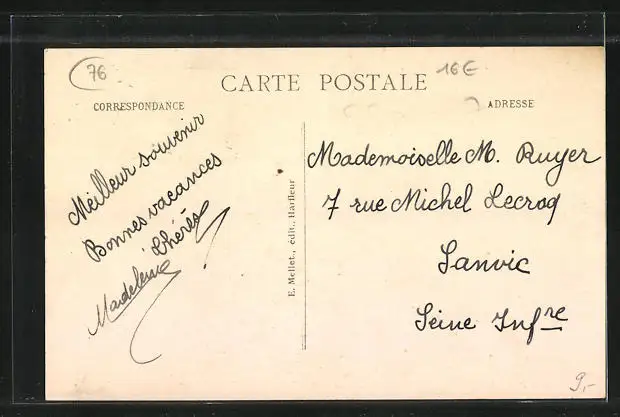 76
16€
CARTE POSTALE
CORRESPONDANCE
ADRESSE
Meilleur souvenir
Bonnes vacances
Thérèse
Madeleine
E. Mellet., édit., Harfleur
Mademoiselle M. Ruyer
7 rue Michel Lecroq
Sanvic
Seine Infre
9,-